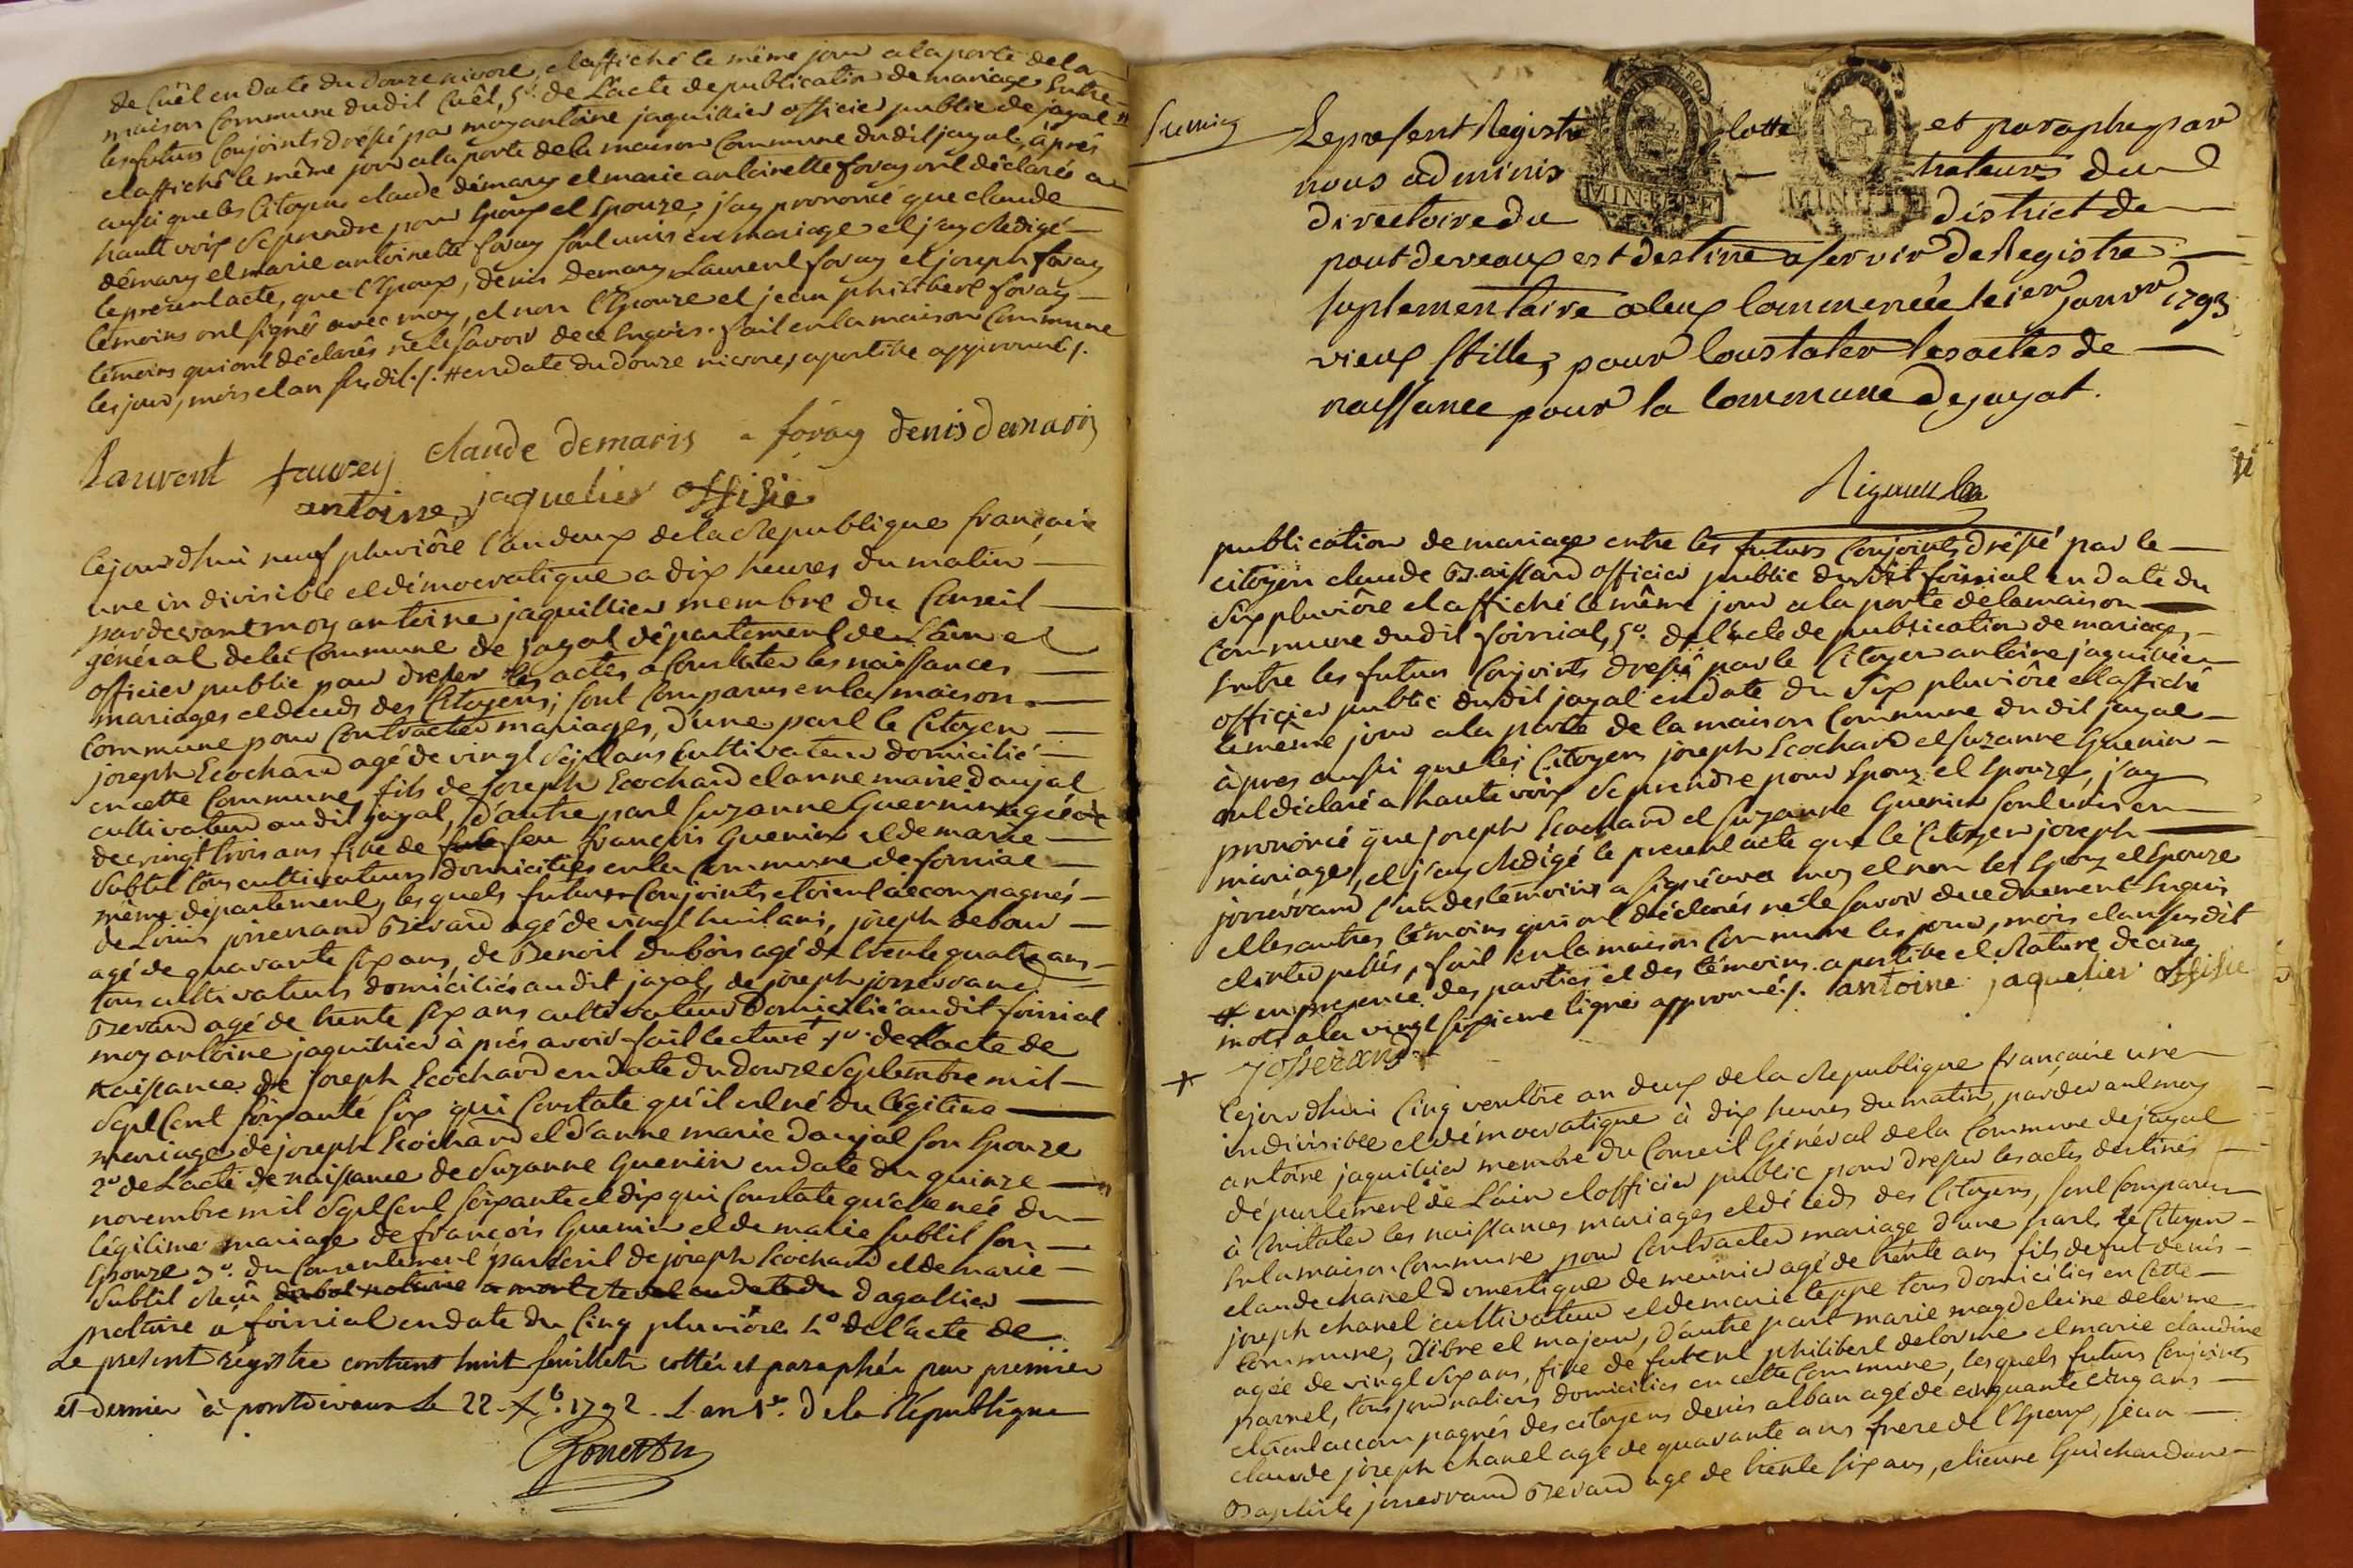 de Cuêt en date du douze nivose, et affiché le même jour a la porte de la
maison Commune dudit Cuêt, 5° de L'acte de publication de mariage Entre
les futurs Conjoints dréssé par moy antoine jaquillier officier public de jayat #
et affiché le même jour a la porte de la maison Commune du dit jayat, àprés
aussi que les Citoyens claude démary et marie antoinette foray ont déclarés a
haute voix se prendre pour Epoux et Epouze, j'ay prononcé que claude
démary et marie antoinette foray sont unis en mariage et j'ay Redigé
le présent acte, que l'Epoux, denis demary, Laurent foray et joseph foray
témoins ont signés avec moy, et non l'Epouze et jean philibert foray
témoins qui ont déclarés ne le savoir de ce Enquis. fait en la maison Commune
les jour, mois et an susdit ./. # en date du douze nivose, apostille approuvé ./.
Laurent fourey claude demaris foray denis demaris
antoine jaquelier offisié
Cejourdhui neuf pluviôse l'an deux de la Republique française
une indivisible et démocratique a dix heures du matin
pardevant moy antoine jaquillier membre du Conseil
général de la Commune de jayat département de L'ain et
officier public pour dresser les actes a Constater les naissances
mariages et decéds des Citoyens; sont Comparus en la maison
Commune pour Contracter mariages, d'une part le Citoyen
joseph Ecochard agé de vingt sept ans Cultivateur domicilié
en cette Commune, fils de joseph Ecochard et anne marie danjat
cultivateur audit jayat, d'autre part Suzanne Guenin agée
de vingt trois ans fille de feu françois Guenin et de marie
Subtil tous cultivateurs domiciliés en la Commune de foissiat
même département, les quels futurs Conjoints etoient accompagnés
de Louis josserand Bévard agé de vingt huit ans, joseph
agé de quarante six ans, de Benoit dubois agé de trente quatre ans
tous cultivateurs domiciliés audit jayat, de joseph josserand
Bevard agé de trente six ans cultivateur domicilié audit foissiat
moy antoine jaquillier à prés avoir fait lecture 1° de L'acte de
Naissance de joseph Ecochard en date du douze Septembre mil
Sept Cent Soixante Six qui Constate qu'il est né du légitime
mariage de joseph Ecochard et d'anne marie danjat son Epouze
2° de L'acte de naissance de Suzanne Guenin en date du quinze
novembre mil Sept Cent Soixante et dix qui Constate qu'elle née du
légitime mariage de françois Guenin et de marie Subtil son
Epouze 3° du Consentement par Ecrit de joseph Ecochard et de marie
Subtil Reçu dagallier
notaire a foissiat en date du Cinq pluviôse 4° de l'acte de
Le present régistre contient huit feuillets cottés et paraphés par premier
et dernier à pontdevaux le 22 Xb. 1792. L'an 1er. de la République
Le present Registre Cotte et paraphé par
nous administrateurs du
directoire du district de
pontdevaux est destiné a servir de Registre
suplementaire a ceux Commencée le 1er janvr 1793
vieux stille, pour Constater les actes de
naissance pour la Commune de jayat.
MINUTE MINUTE
publication de mariage entre les futurs Conjoints dréssé par le
citoyen claude officier public dudit foissiat en date du
Six pluviôse et affiché le même jour a la porte de la maison
Commune dudit foissiat, 5° de l'acte de publication de mariage
Entre les futurs Conjoints dressé par le Citoyen antoine jaquillier
officier public dudit jayat en date du Six pluviôse et affiché
le même jour a la porte de la maison Commune du dit jayat
àpres aussi que les Citoyens joseph Ecochard et Suzanne Guenin
ont déclaré a haute voix Se prendre pour Epoux et Epouze, j'ay
prononcé que joseph Ecochard et Suzanne Guenin sont unis en
mariage, et j'ay Redigé le present acte que le Citoyen joseph
josserand l'un des témoins a signé avec moy et non les Epoux et Epouze
et les autres témoins qui ont déclarés ne le savoir de ce duement Enquis
et interpellés, fait en la maison Commune les jour, mois et an susdit
# en presence des parties et des témoins. apostille et Rature de cinq
mots a la vingt sixieme lignes approuvé ./. antoine jaquelier offisie
josserand
Cejourdhui Cinq ventôse an deux de la Republique française une
indivisible et démocratique à dix heures du matin, pardevant moy
antoine jaquillier membre du Conseil Général de la Commune de jayat
département de L'ain et officier public pour dresser les actes destinés
à Constater les naissances mariages et décéds des Citoyens, sont Comparus
En la maison Commune pour Contracter mariage d'une part, le Citoyen
claude chanel domestique de meunier agé de trente ans fils de fut denis
joseph chanel cultivateur et de marie teppe tous domiciliés en Cette
Commune, libre et majeur, d'autre part marie magdeleine delorme
agée de vingt Six ans, fille de philibert delorme et marie claudine
parnet, tous journaliers domiciliés en cette Commune, lesquels futurs Conjoints
etoient accompagnés des citoyens denis alban agé de cinquante cinq ans
claude joseph chanel agé de quarante ans frere de l'Epoux, jean
Baptiste josserand Bevard agé de trente six ans, etienne Guichardan